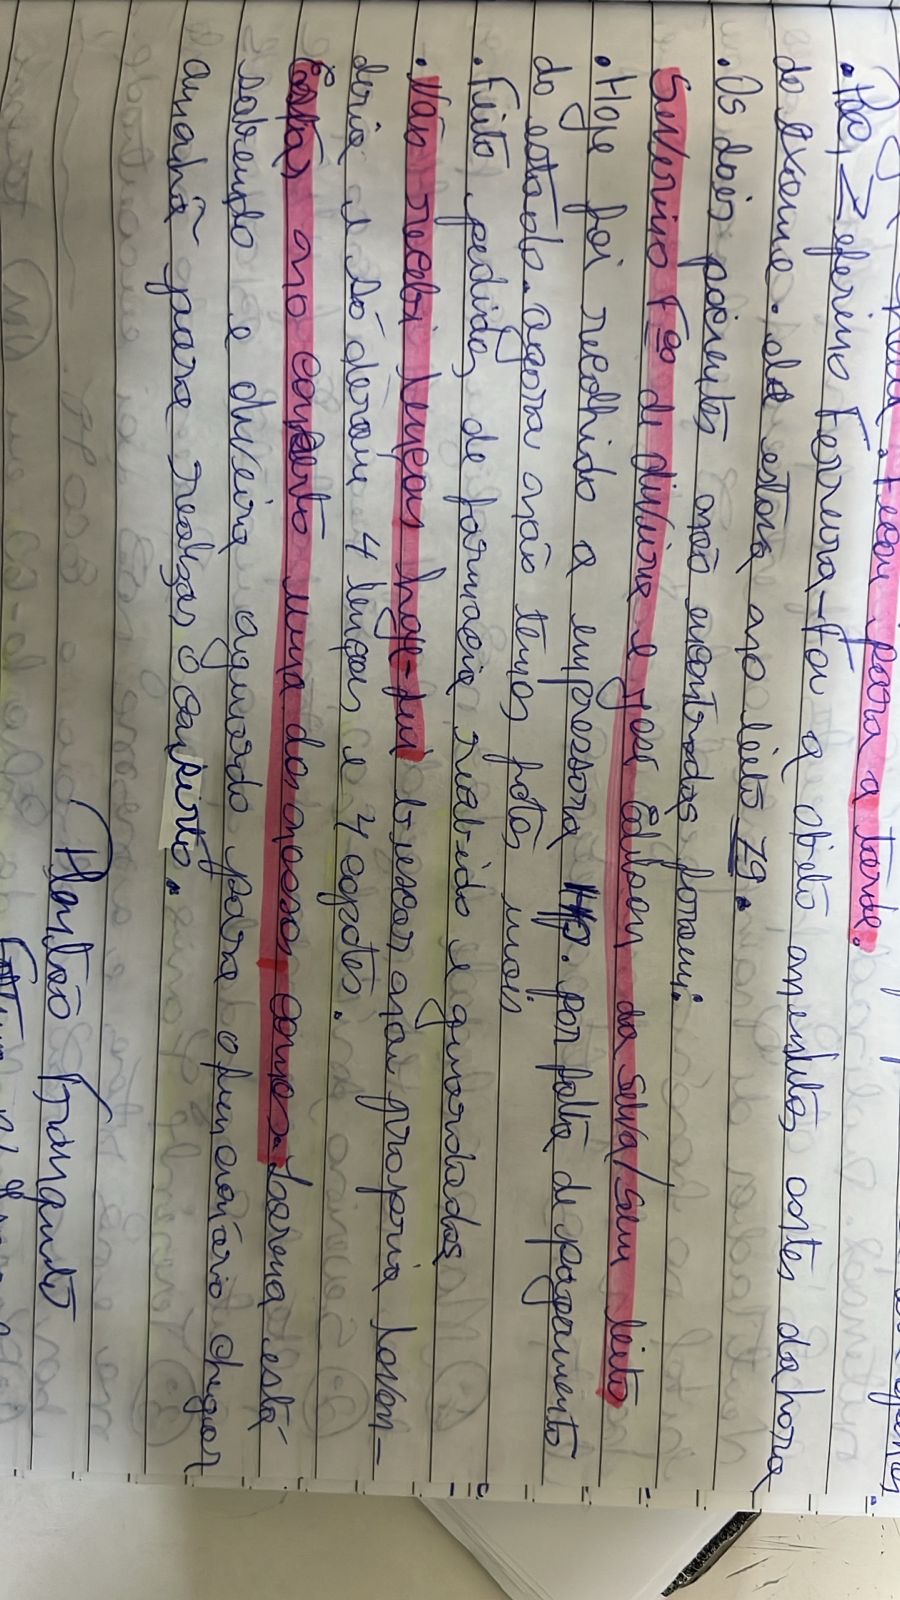 ficou para a tarde.
. Pac, Zeferino Ferreira - foi a óbito minutos antes da hora
do exame. ele estava no leito 79.
. Os dois pacientes não encontrados foram:
Severino Fco de oliveira e José Edilson da Silva / Sem leito
. Hoje foi recolhido a impressora HP. por falta de pagamento
do estado. agora não temos fotos mais
. Feito pedidos de farmacia recebido e guardados
. Não recebi lençois hoje - fui buscar na propria lavan-
deria e só deram 4 lençois e 4 capotes.
Está no conserto uma das nossas camas. Lorena está
sabendo e deveria aguardo para o funcionário chegar
amanhã para realizar o conserto.
Plantão Tranquilo